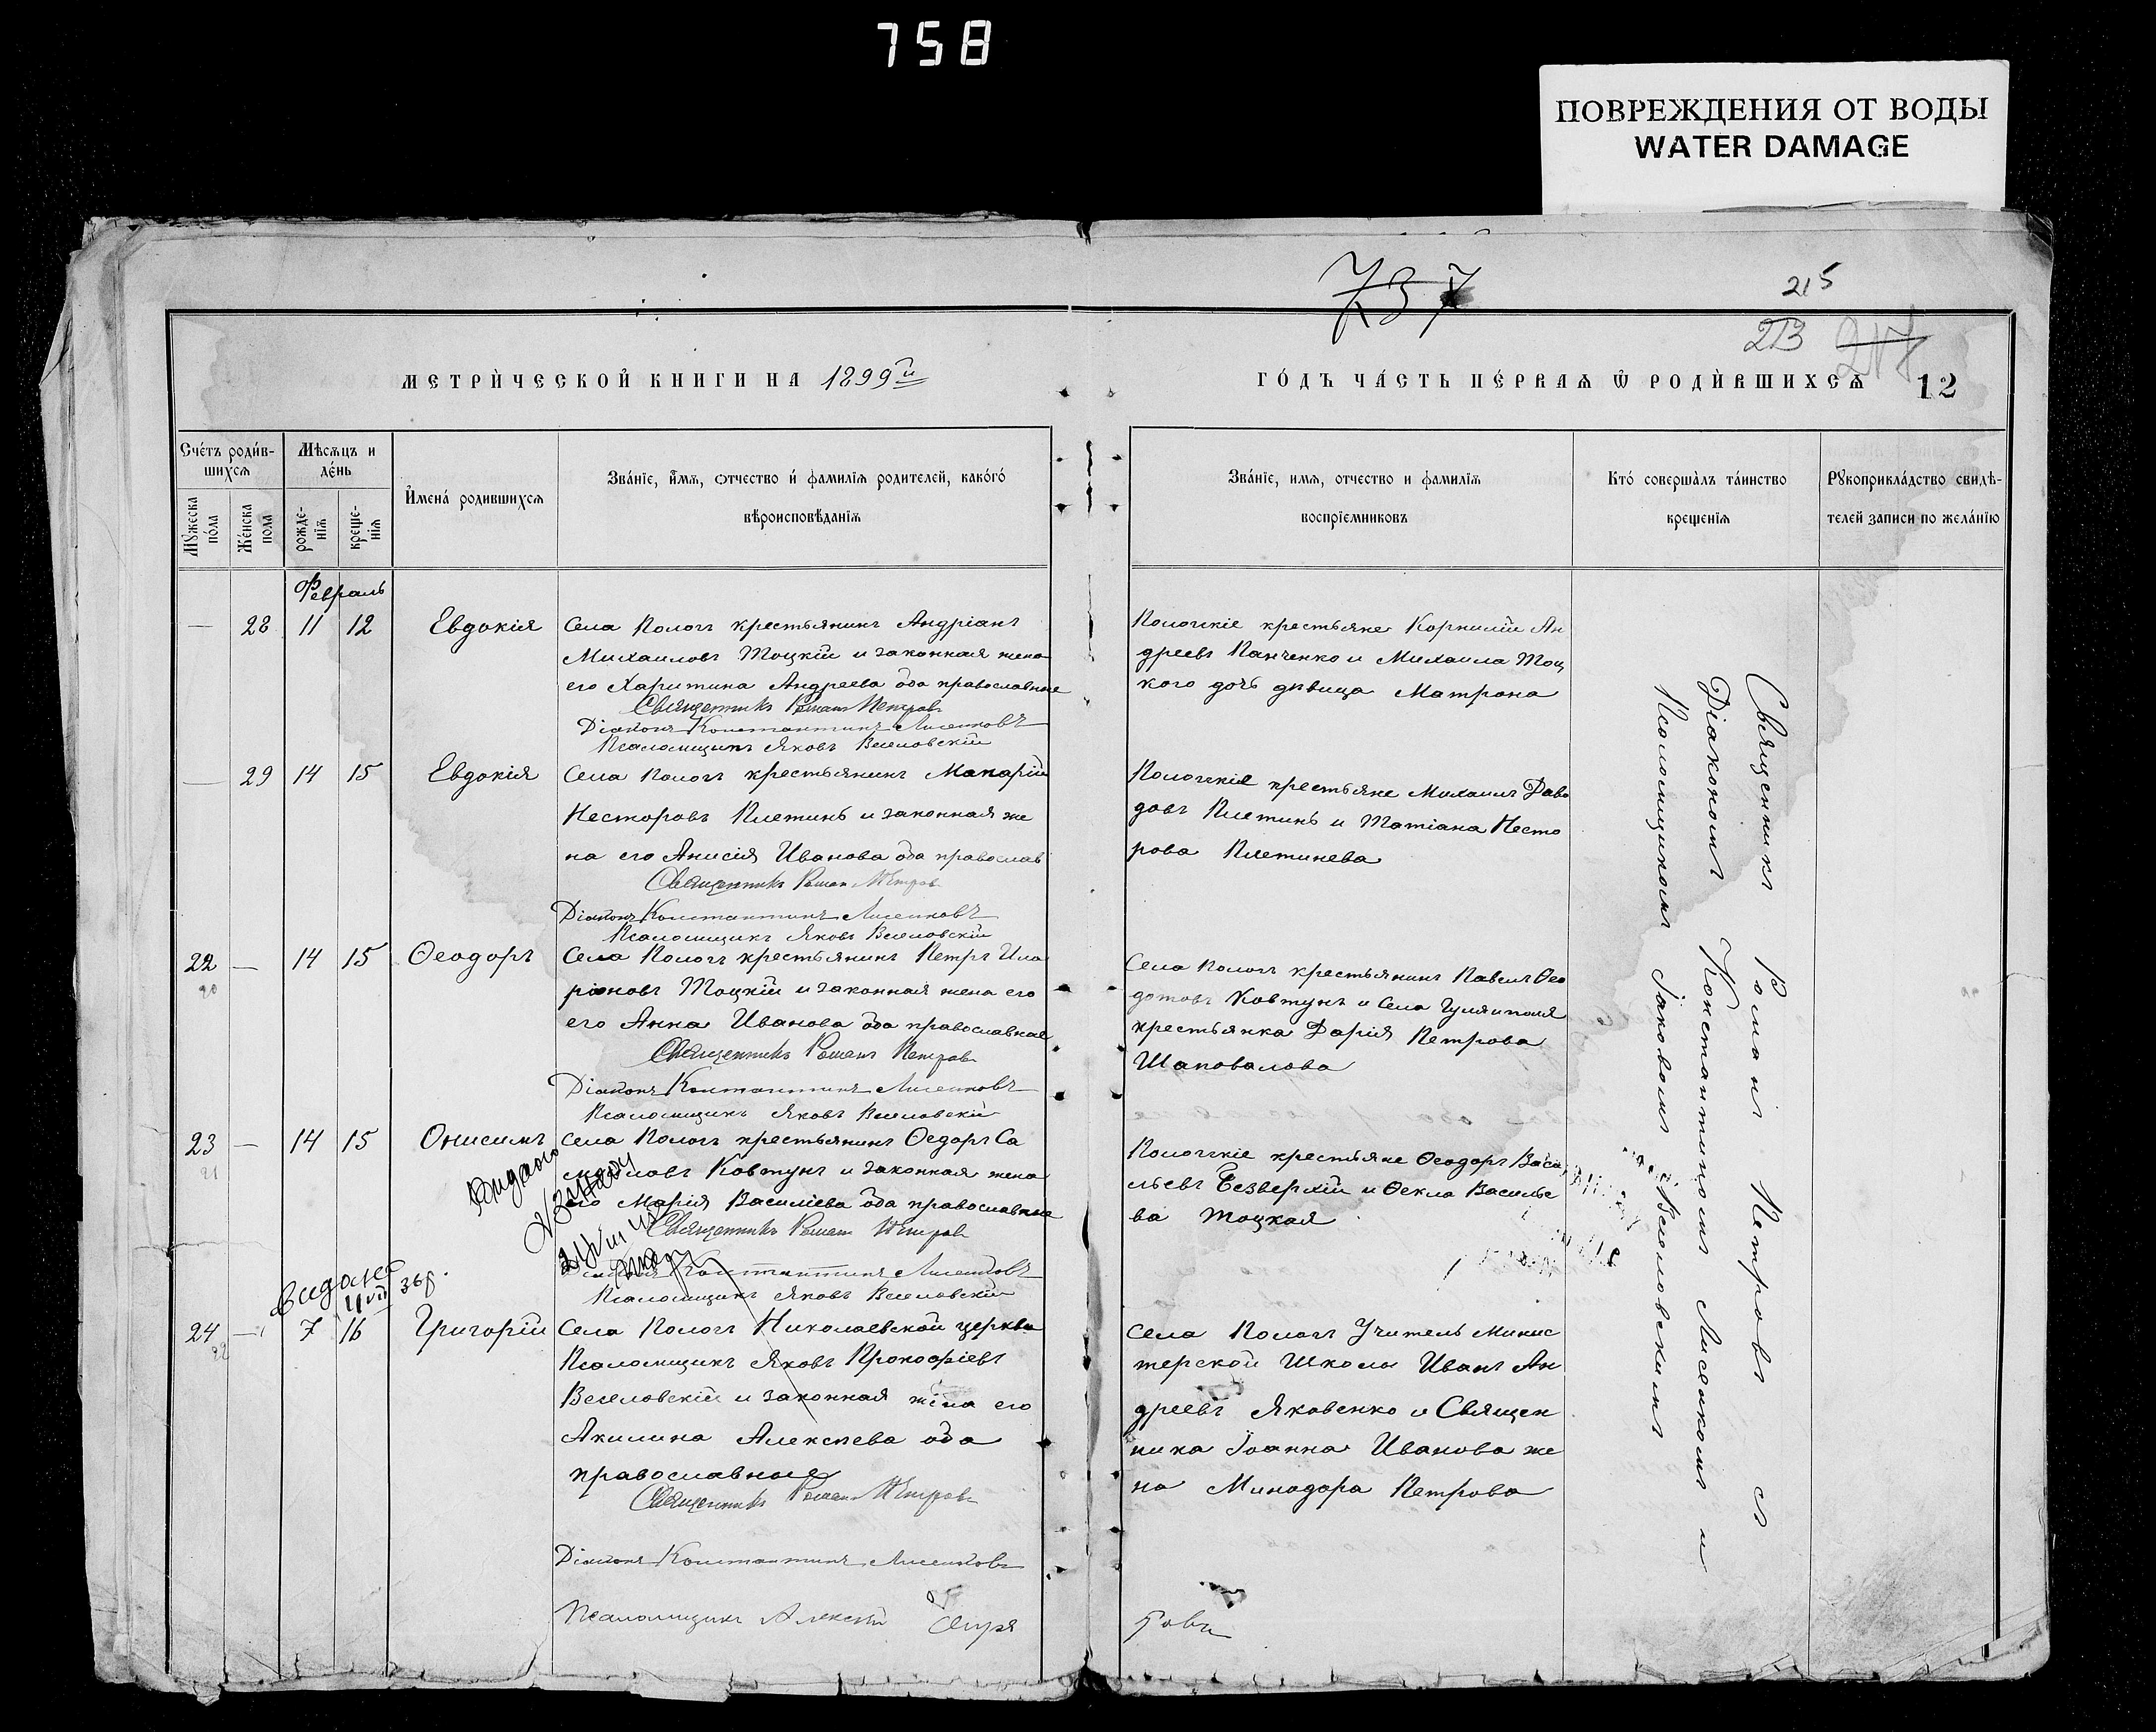 758
ПОВРЕЖДЕНИЯ ОТ ВОДЫ
WATER DAMAGE
737
215
213
217
МЕТРИ́ЧЕСКОЙ КНИГИ НА 1899й
ГО́ДЪ ЧА́СТЬ ПЕ́РВАѦ Ѿ РОДИ́ВШИХСѦ
12
Сче́тъ роди́в-
шихсѧ
Мѣсѧцъ и
де́нь
Мꙋжеска
по́ла
Же́нска
пола
рожде-
нїѧ
креще-
нїѧ
И҆мена́ родившихсѧ
Зва́нїе, и҆́мѧ, ѻтчество и҆ фамилїѧ родителей, како́гѡ
вѣроисповѣданїѧ
Зва́нїе, имѧ, отчество и фамилїѧ
воспрїемниковъ
Кто́ соверша̀лъ та́инство
крещенїѧ
Рꙋкоприкла́дство свидѣ-
телей записи по жела́нїю
Февраль
— 28 11 12 Евдокія
Села Пологъ крестьянинъ Андріанъ
Михаиловъ Тоцкій и законная жена
его Харитина Андреева оба православные
Священникъ Романъ Петровъ
Діаконъ Константинъ Лисенковъ
Псаломщикъ Яковъ Веселовскій
Пологскіе крестьяне Корнилій Ан
дреевъ Панченко и Михаила Тоц
кого дочь дѣвица Матрона
— 29 14 15 Евдокія
Села Пологъ крестьянинъ Макарій
Несторовъ Плетинь и законная же
на его Анисія Иванова оба православ
Священникъ Роман Петров
Діаконъ Константинъ Лисенковъ
Псаломщикъ Яковъ Веселовскій
Пологскіе крестьяне Михаилъ Дави
довъ Плетинь и Татіана Несто
рова Плетинева
22 — 14 15 Ѳеодоръ
20
Села Пологъ крестьянинъ Петръ Ила
ріоновъ Тоцкій и законная жена его
его Анна Иванова оба православные
Священникъ Романъ Петровъ
Діаконъ Константинъ Лисенковъ
Псаломщикъ Яковъ Веселовскій
Села Пологъ крестьянинъ Павелъ Ѳео
дотовъ Ковтунъ и Села Гуляиполя
крестьянка Дарія Петрова
Шаповалова
23 — 14 15 Онисимъ
21
Села Пологъ крестьянинъ Ѳедоръ Са
моиловъ Ковтунъ и законная жена
его Марія Василіева оба православные
Священникъ Романъ Петровъ
Діаконъ Константинъ Лисенковъ
Псаломщикъ Яковъ Веселовскій
Пологскіе крестьяне Ѳеодоръ Васи
льевъ Безверхій и Ѳекла Василье
ва Тоцкая
24 — 7 16 Григорій
22
Села Пологъ Николаевской церкви
Псаломщикъ Яковъ Прокофіевъ
Веселовскій и законная жена его
Акилина Алексѣева оба
православные
Священникъ Роман Петровъ
Діаконъ Константинъ Лисенковъ
Псаломщикъ Алексѣй
Села Пологъ Учитель Минис
терской Школы Иванъ Ан
дреевъ Яковенко и Священ
ника Іоанна Иванова же
на Минодора Петрова
Священникъ Романъ Петровъ съ
Діакономъ Константиномъ Лисенкомъ и
Псаломщикомъ Іаковомъ Веселовскимъ